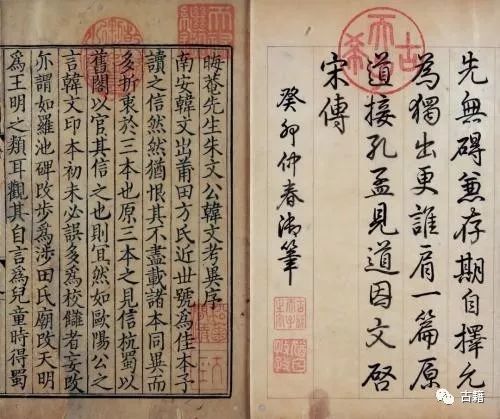 先無碍兼存期自擇允
為獨出更誰肩一篇原
道接孔孟見道因文啓
宋傳
癸卯仲春御筆
古希天子
晦菴先生朱文公韓文考異序
南安韓文出莆田方氏近世號爲佳本予
讀之信然然猶恨其不盡載諸本同異而
多折衷於三本也原三本之見信杭蜀以
舊閣以官其信之也則宜然如歐陽公之
言韓文印本初未必誤多爲校讎者妄改
亦謂如羅池碑改步爲涉田氏廟改天明
爲王明之類耳觀其自言爲兒童時得蜀
古籍